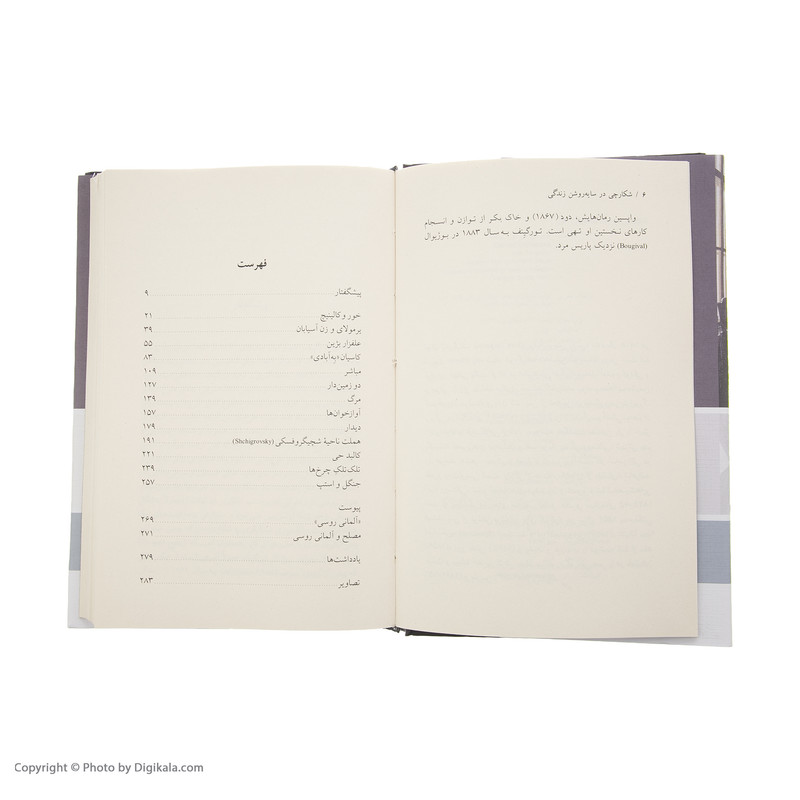 ۶ / شکارچی در سایه‌روشن زندگی
واپسین رمان‌هایش، دود (۱۸۶۷) و خاک بکر از توازن و انسجام
کارهای نخستین او تهی است. تورگنِیف به سال ۱۸۸۳ در بوژیوال
(Bougival) نزدیک پاریس مرد.
فهرست
پیشگفتار ۹
خور و کالینیچ ۲۱
یرمولای و زن آسیابان ۳۹
علفزار بژین ۵۵
کاسیان «به‌آبادی» ۸۳
مباشر ۱۰۹
دو زمین‌دار ۱۲۷
مرگ ۱۳۹
آوازخوان‌ها ۱۵۷
دیدار ۱۷۹
هملت ناحیهٔ شچیگروفسکی (Shchigrovsky) ۱۹۱
کالبد حی ۲۲۱
تلک‌تلک چرخ‌ها ۲۳۹
جنگل و استپ ۲۵۷
پیوست
«آلمانی روسی» ۲۶۹
مصلح و آلمانی روسی ۲۷۱
یادداشت‌ها ۲۷۹
تصاویر ۲۸۳
Copyright © Photo by Digikala.com